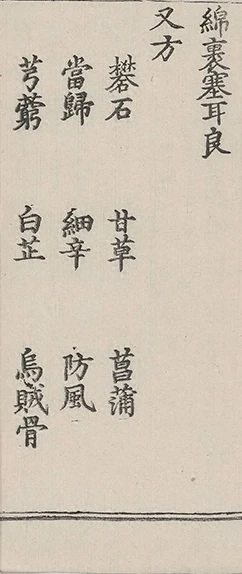 綿裹塞耳良
又方
礬石 甘草 菖蒲
當歸 細辛 防風
芎藭 白芷 烏賊骨